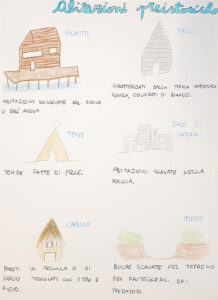 Abitazioni preistoriche
PALAFITTE
ABITAZIONI SOLLEVATE DAL SUOLO
O DALL'ACQUA.
TRULLI
CARATTERIZZATI DALLA TIPICA COPERTURA
CONICA, COLORATI DI BIANCO.
TENDE
TENDE FATTE DI PELLE.
SASSI DI
MATERA
ABITAZIONI SCAVATE NELLA
ROCCIA.
CAPANNE
PARETI IN ARGILLA O DI
FANGO MESCOLATI CON ERBE E
FIENO.
BUCHE SCAVATE NEL TERRENO
PER PROTEGGERSI DAI
PREDATORI.